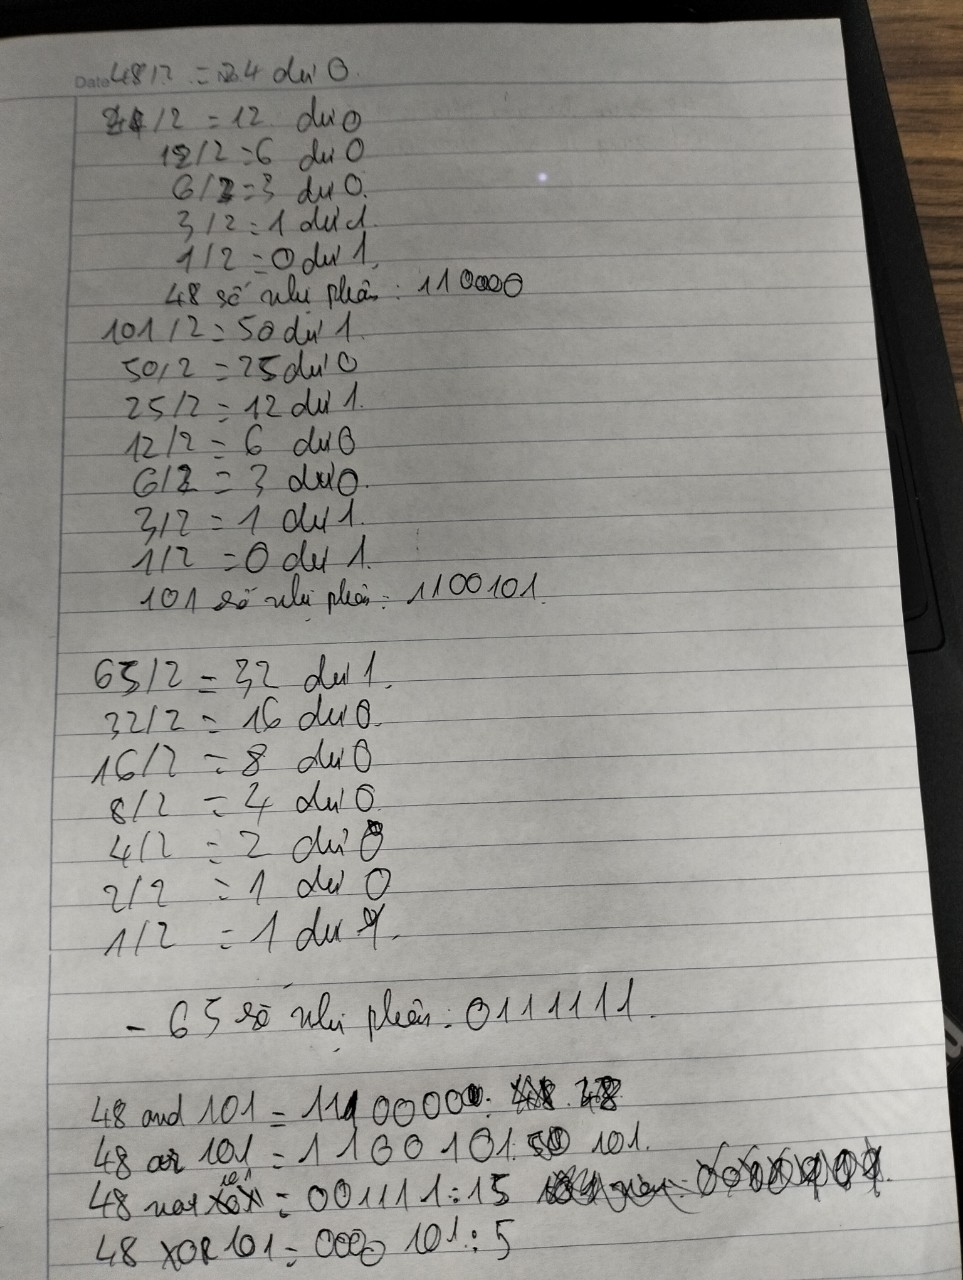 Date 48/2 = 24 dư 0.
24/2 = 12 dư 0
12/2 = 6 dư 0
6/2 = 3 dư 0.
3/2 = 1 dư 1.
1/2 = 0 dư 1.
48 số nhị phân : 110000
101/2 = 50 dư 1.
50/2 = 25 dư 0
25/2 = 12 dư 1.
12/2 = 6 dư 0
6/2 = 3 dư 0.
3/2 = 1 dư 1.
1/2 = 0 dư 1.
101 số nhị phân : 1100101.
65/2 = 32 dư 1.
32/2 = 16 dư 0.
16/2 = 8 dư 0
8/2 = 4 dư 0.
4/2 = 2 dư 0
2/2 = 1 dư 0
1/2 = 1 dư
- 65 số nhị phân : 0111111.
48 and 101 = 1110000:
48 or 101 = 1100101: 101.
48 not = 001111 : 15
48 XOR 101 = 0000 101 : 5